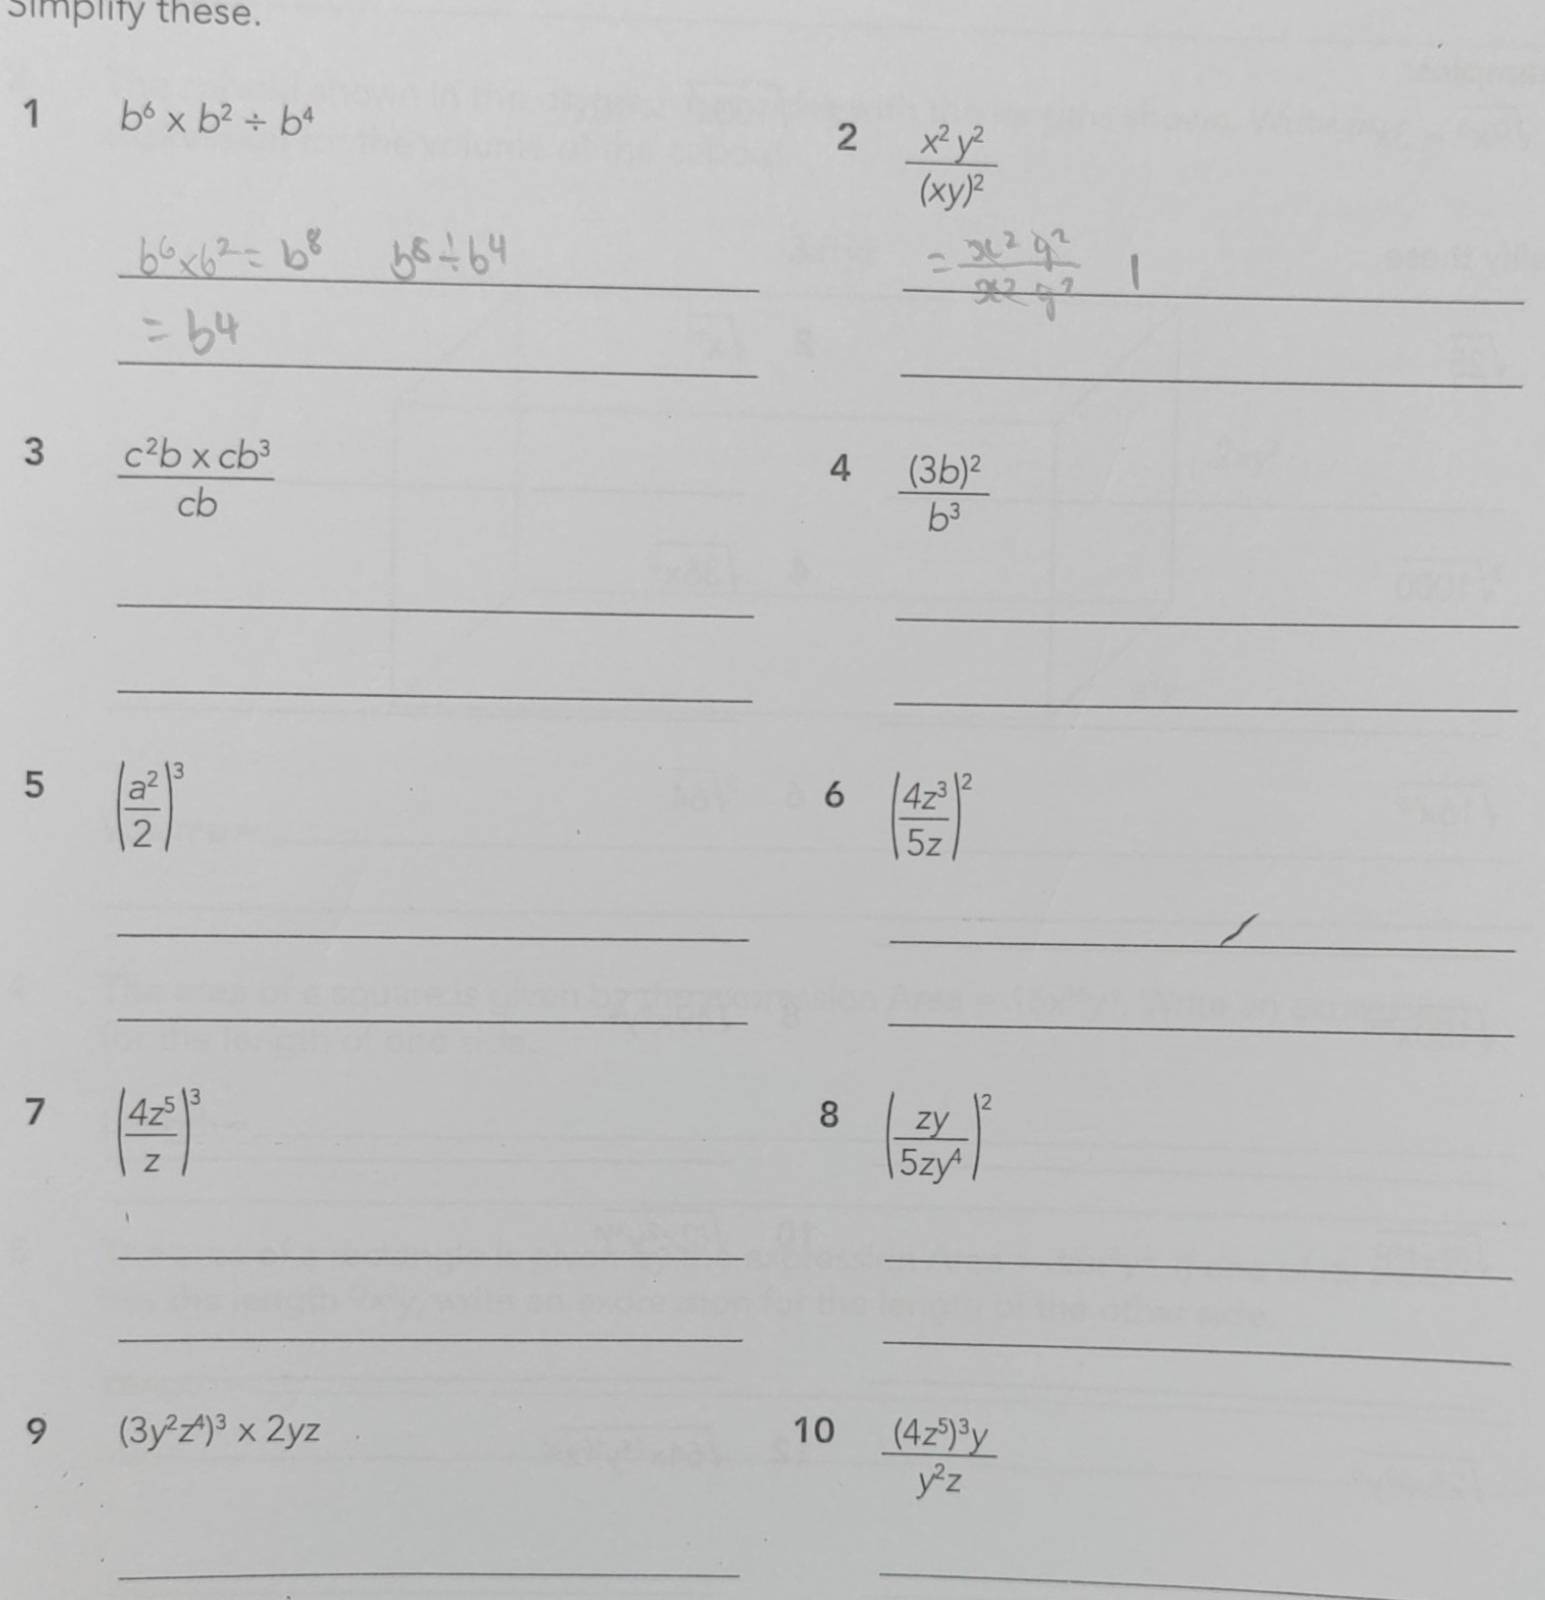 Simplify these.
1 b⁶ × b² ÷ b⁴
2 x²y²/(xy)²
b⁶×b² = b⁸ b⁸÷b⁴
= x²y²/x²y² 1
= b⁴
3 (c²b × cb³)/cb
4 (3b)²/b³
5 (a²/2)³
6 (4z³/5z)²
7 (4z⁵/z)³
8 (zy/5zy⁴)²
9 (3y²z⁴)³ × 2yz
10 (4z⁵)³y/y²z